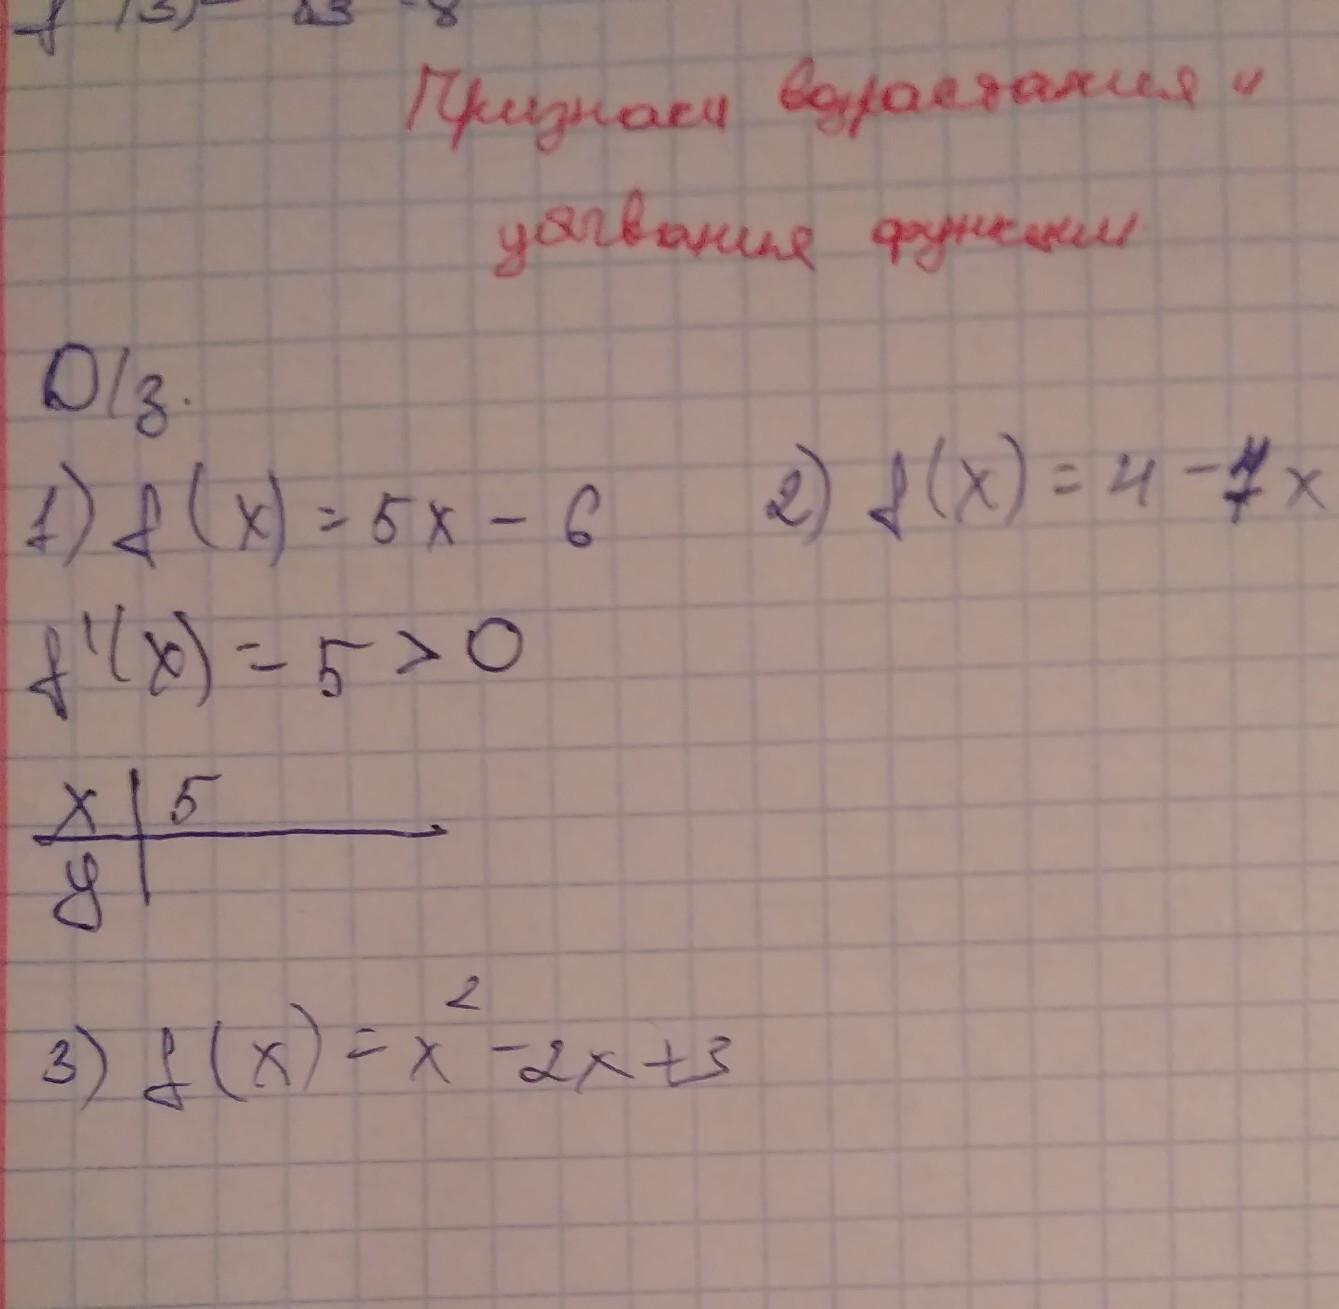 Признаки возрастания и
убывания функции
D/з.
1) f(x) = 5x - 6
2) f(x) = 4 - 7x
f'(x) = 5 > 0
x | 5
y |
3) f(x) = x² - 2x + 3